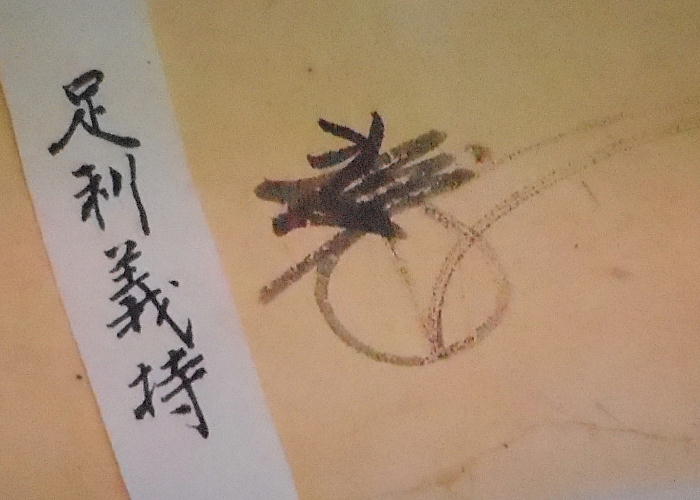 足利義持